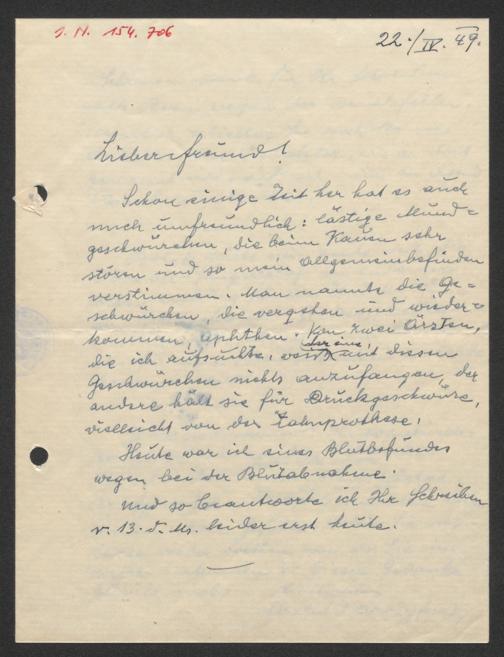 J. N. 154.706
22./IV. 49.
Lieber Freund!
Schon einige Zeit her hat es auch
mich unfreundlich: lästige Mund=
geschwürchen, die beim Kauen sehr
stören und so mein Allgemeinbefinden
verstimmen. Man nannte die Ge=
schwürchen, die vergehen und wieder=
kommen, Aphthen. Von zwei Ärzten,
die ich aufsuchte, weiß der eine, mit diesen
Geschwürchen nichts anzufangen, der
andere hält sie für Druckgeschwüre,
vielleicht von der Zahnprothese.
Heute war ich eines Blutbefundes
wegen bei der Blutabnahme.
Und so beantworte ich Ihr Schreiben
v. 13. d. Ms. leider erst heute.